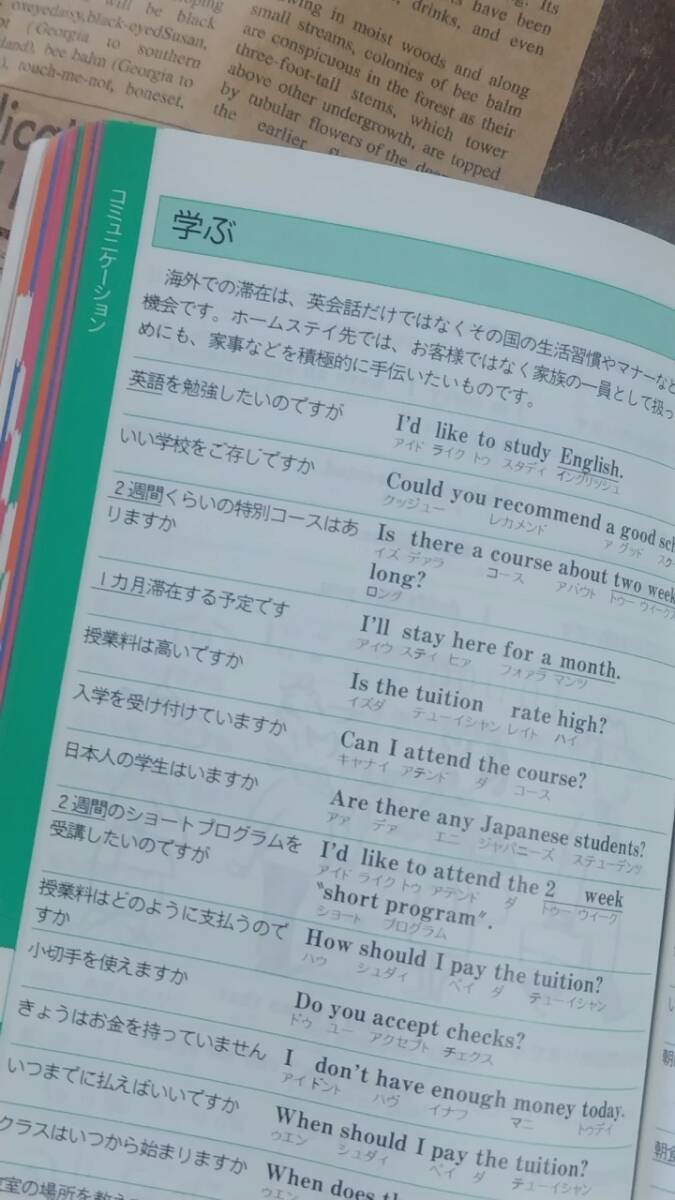 will be black
oxeyedaisy, black-eyedSusan,
(Georgia to southern
bee balm (Georgia to
touch-me-not, boneset,
Its
have been
drinks, and even
in moist woods and along
small streams, colonies of bee balm
are conspicuous in the forest as their
three-foot-tall stems, which tower
above other undergrowth, are topped
by tubular flowers of the
the earlier
コミュニケーション
学ぶ
海外での滞在は、英会話だけではなくその国の生活習慣やマナーなど
機会です。ホームステイ先では、お客様ではなく家族の一員として扱っ
めにも、家事などを積極的に手伝いたいものです。
英語を勉強したいのですが
I'd like to study English.
アイド ライク トゥ スタディ イングリッシュ
いい学校をご存じですか
Could you recommend a good
クッジュー レカメンド ア グッド
2週間くらいの特別コースはあ
りますか
Is there a course about two week
イズ デァラ コース アバウト トゥー ウィークス
long?
ロング
1カ月滞在する予定です
I'll stay here for a month.
アイウ ステイ ヒァ フォァラ マンツ
授業料は高いですか
Is the tuition rate high?
イズダ テューイシャン レイト ハイ
入学を受け付けていますか
Can I attend the course?
キャナイ アテンド ダ コース
日本人の学生はいますか
Are there any Japanese students?
アァ デァ エニ ジャパニーズ ステューデンツ
2週間のショートプログラムを
受講したいのですが
I'd like to attend the 2 week
アイド ライク トゥ アテンド ダ トゥー ウィーク
"short program".
ショート プログラム
授業料はどのように支払うので
すか
How should I pay the tuition?
ハウ シュダイ ペイ ダ テューイシャン
小切手を使えますか
Do you accept checks?
ドゥ ユー アクセプト チェクス
きょうはお金を持っていません
I don't have enough money today.
アイ ドント ハヴ イナフ マニ トゥデイ
いつまでに払えばいいですか
When should I pay the tuition?
ゥエン シュダイ ペイ ダ テューイシャン
クラスはいつから始まりますか
When does
ゥエン
室の場所を教え
朝
朝食